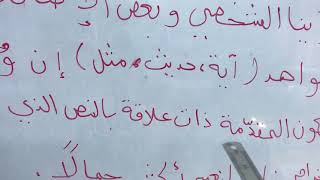 رأينا الشخصي وبعض الإ
واهد (آية، حديث، مثل) إن وُ
كون المقدّمة ذات علاقة بالنص الذي
جمالًا.